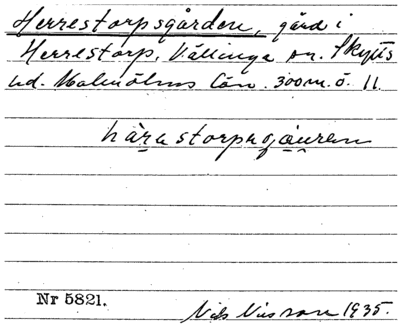 Herrestorpsgården, gård i
Herrestorp, Vällinge sn. Skytts
hd. Malmöhus län. 300 m. ö. 11.
härastorpsgåuren
Nr 5821.
Nils Nilsson 1935.